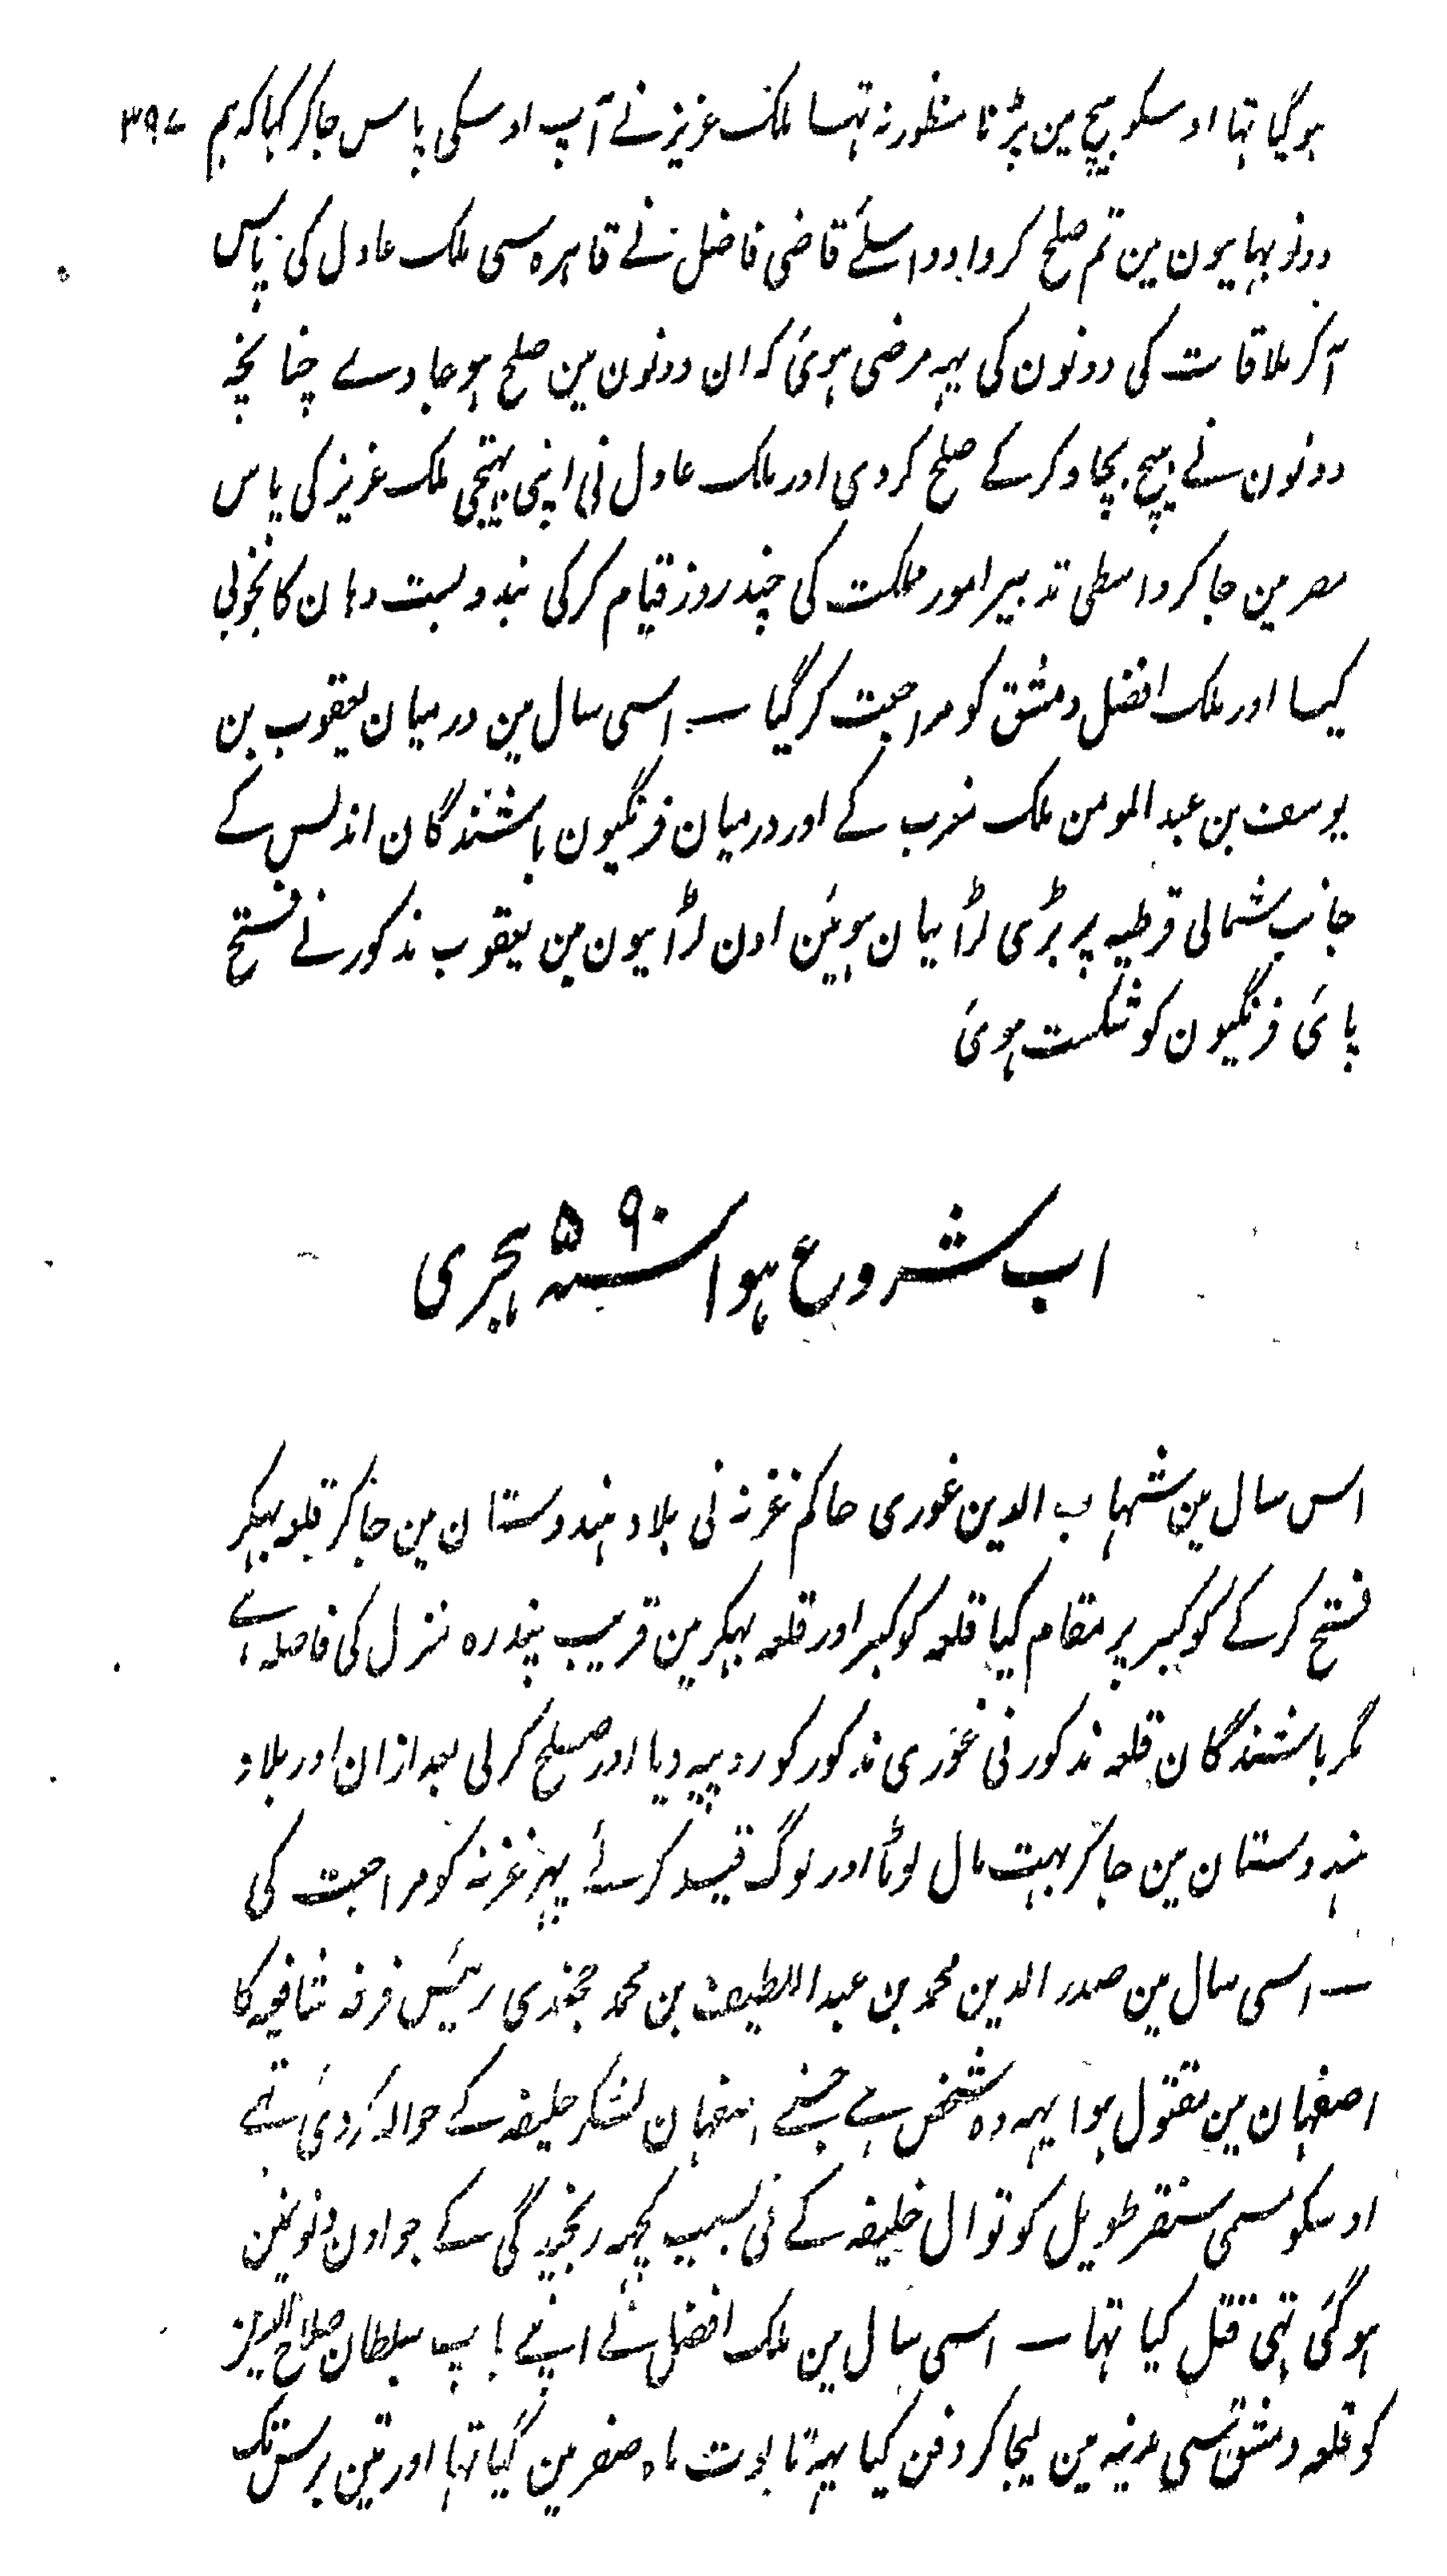 ہوگیا تہا اوسکو بیچ مین پڑنا منظور نہ تہا ملک عزیز نے آپ اوسکی پاس جاکر کہا کہ ہم ۳۹۷
دونو بہایون مین تم صلح کروا دو اسلئے قاضی فاضل نے قاہرہ سی ملک عادل کی پاس
آکر ملاقات کی دونون کی یہہ مرضی ہوئی کہ ان دونون مین صلح ہو جاوے چنانچہ
دونون نے بیچ بچاو کرکے صلح کردی اور ملک عادل نی اپنی بہتیجی ملک عزیز کی پاس
مصر مین جاکر واسطی تدبیر امور مملکت کی چند روز قیام کرکی بندوبست وہان کا بخوبی
کیا اور ملک افضل دمشق کو مراجعت کرگیا ــ اسی سال مین درمیان یعقوب بن
یوسف بن عبد المومن ملک مغرب کے اور درمیان فرنگیون باشندگان اندلس کے
جانب شمالی قرطبہ پر بڑی لڑائیان ہوئین اون لڑائیون مین یعقوب مذکور نے فتح
پائی فرنگیون کو شکست ہوئی
اب شروع ہوا سنہ ۵۹۰ ہجری
اس سال مین شہاب الدین غوری حاکم غزنہ نی بلاد ہندوستان مین جاکر قلعہ بہیکر
فتح کرکے کوکبر پر مقام کیا قلعہ کوکبر اور قلعہ بہیکر مین قریب پندرہ منزل کی فاصلہ ہے
مگر باشندگان قلعہ مذکور نی غوری مذکور کو روپیہ دیا اور صلح کرلی بعد ازان اور بلاد
ہندوستان مین جاکر بہت مال لوٹا اور لوگ قید کرلئے پہر غزنہ کو مراجعت کی
ــ اسی سال مین صدر الدین محمد بن عبد اللطیف بن محمد خجندی رئیس فرقہ شافعیہ کا
اصفہان مین مقتول ہوا یہہ وہ شخص ہے جسنے اصفہان لشکر خلیفہ کے حوالہ کردی تہے
اوسکو مسمی سنقر طویل کوتوال خلیفہ کے نی بسبب کچہہ رنجیدگی کے جو اون دونونمین
ہوگئی تہی قتل کیا تہا ــ اسی سال مین ملک افضل نے اپنے باپ سلطان صلاح الدین
کو قلعہ دمشق سی مدینہ مین لیجاکر دفن کیا یہہ تابوت ماہ صفر مین گیا تہا اور تین برس تک